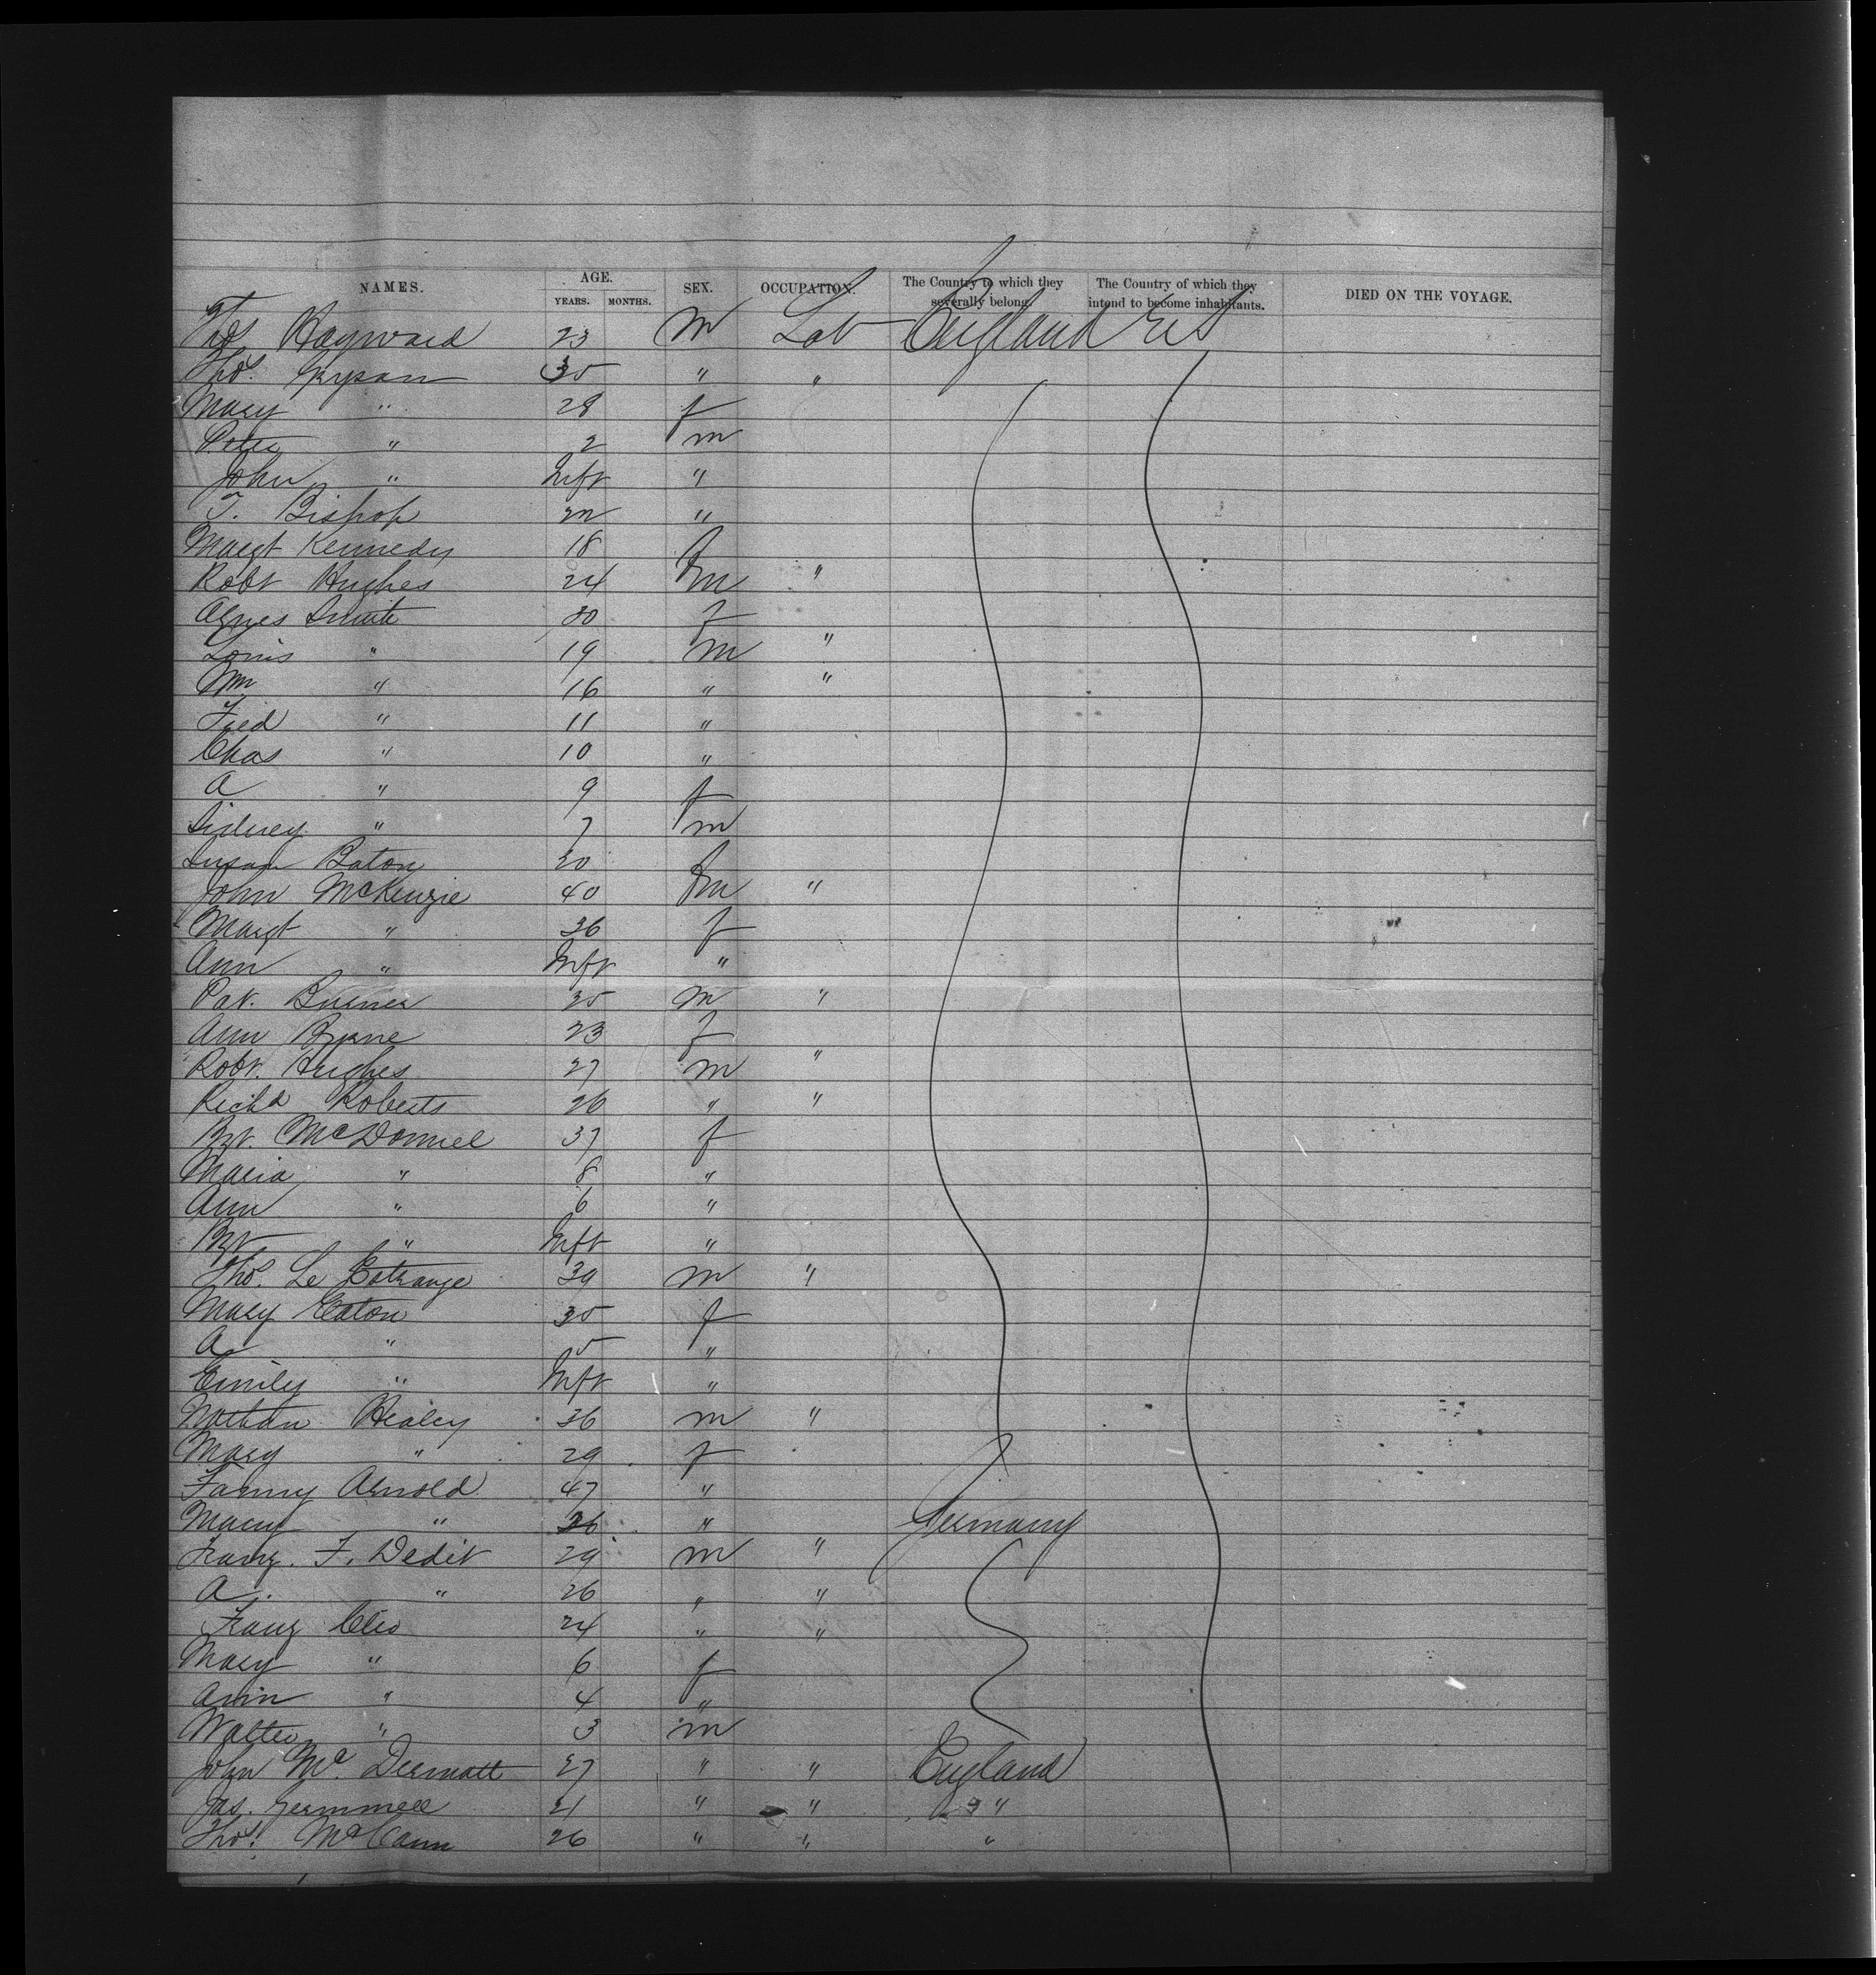 NAMES. AGE. YEARS. MONTHS. SEX. OCCUPATION. The Country to which they severally belong. The Country of which they intend to become inhabitants. DIED ON THE VOYAGE.
Hayward 23 m Lab England U S
Thos. Grysam 35 " "
Mary " 28 f
Peter " 2 m
John " Inft "
T. Bishop 22 "
Margt Kennedy 18 f
Robt Hughes 24 m "
Agnes Smith 30 f
Louis " 19 m "
Wm " 16 " "
Fred " 11 "
Chas " 10 "
A " 9 f
Sidney " 7 m
Susan Baton 20 f
John McKenzie 40 m "
Margt " 36 f
Ann " Inft "
Pat. 35 m "
Ann Byrne 23 f
Robt. Hughes 27 m "
Richd Roberts 26 " "
Bgt. McDonnel 37 f
Maria " 8 "
Ann " 6 "
Bgt " Inft "
Thos. Le Estrange 39 m "
Mary Eaton 35 f
A " 5 "
Emily " Inft "
Nathan Healey 36 m "
Mary " 29 f
Fanny Arnold 47 "
Mary " 26 " Germany
Franz. F. Dedit 29 m "
A. " 26 " "
Franz 24 " "
Mary " 6 f
Ann " 4 "
Walter " 3 m
John Mc. Dermott 27 " " England
Jas. Gemmell 21 " " "
Thos. McCann 26 " " "